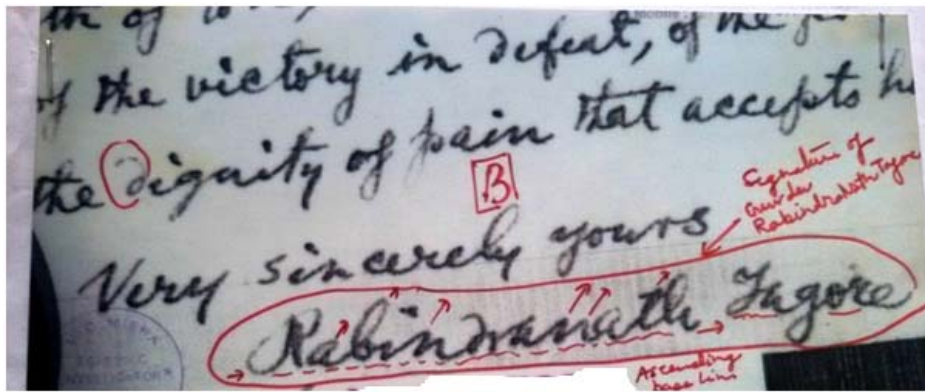 th of
of the victory in defeat, of the
the dignity of pain that accepts
B
Signature of
Gurudev
Rabindranath Tagore
Very sincerely yours
Rabindranath Tagore
Ascending
base line